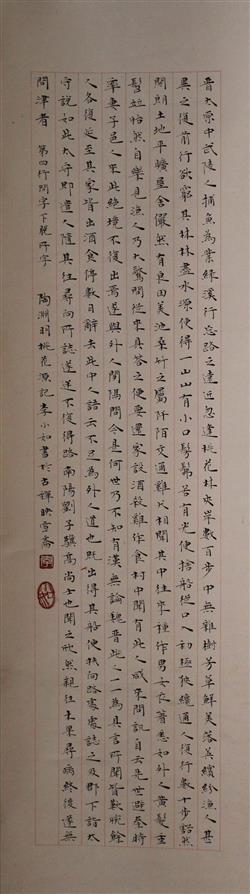 晉太原中武陵人捕魚為業緣溪行忘路之遠近忽逢桃花林夾岸數百步中無雜樹芳草鮮美落英繽紛漁人甚
異之復前行欲窮其林林盡水源便得一山山有小口髣髴若有光便捨船從口入初極狹纔通人復行數十步豁然
開朗土地平曠屋舍儼然有良田美池桑竹之屬阡陌交通雞犬相聞其中往來種作男女衣著悉如外人黃髮垂
髫並怡然自樂見漁人乃大驚問從來具答之便要還家設酒殺雞作食村中聞有此人咸來問訊自云先世避秦時
率妻子邑人來此絕境不復出焉遂與外人間隔問今是何世乃不知有漢無論魏晉此人一一為具言所聞皆歎惋餘
人各復延至其家皆出酒食停數日辭去此中人語云不足為外人道也既出得其船便扶向路處處誌之及郡下詣太
守說如此太守即遣人隨其往尋向所誌遂迷不復得路南陽劉子驥高尚士也聞之欣然親往未果尋病終後遂無
問津者 第四行問字下脫所字 陶淵明桃花源記李小如書於古 映雪齋